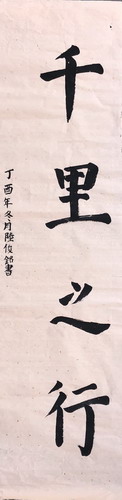 千里之行
丁酉年冬月陸俊銘書